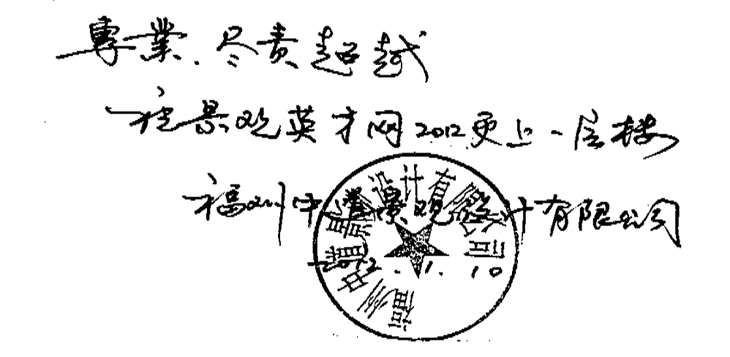 專業、尽责超越
祝景观英才网2012更上一层楼
福州中景观设计有限公司
2012.1.10
福州中景观设计有限公司